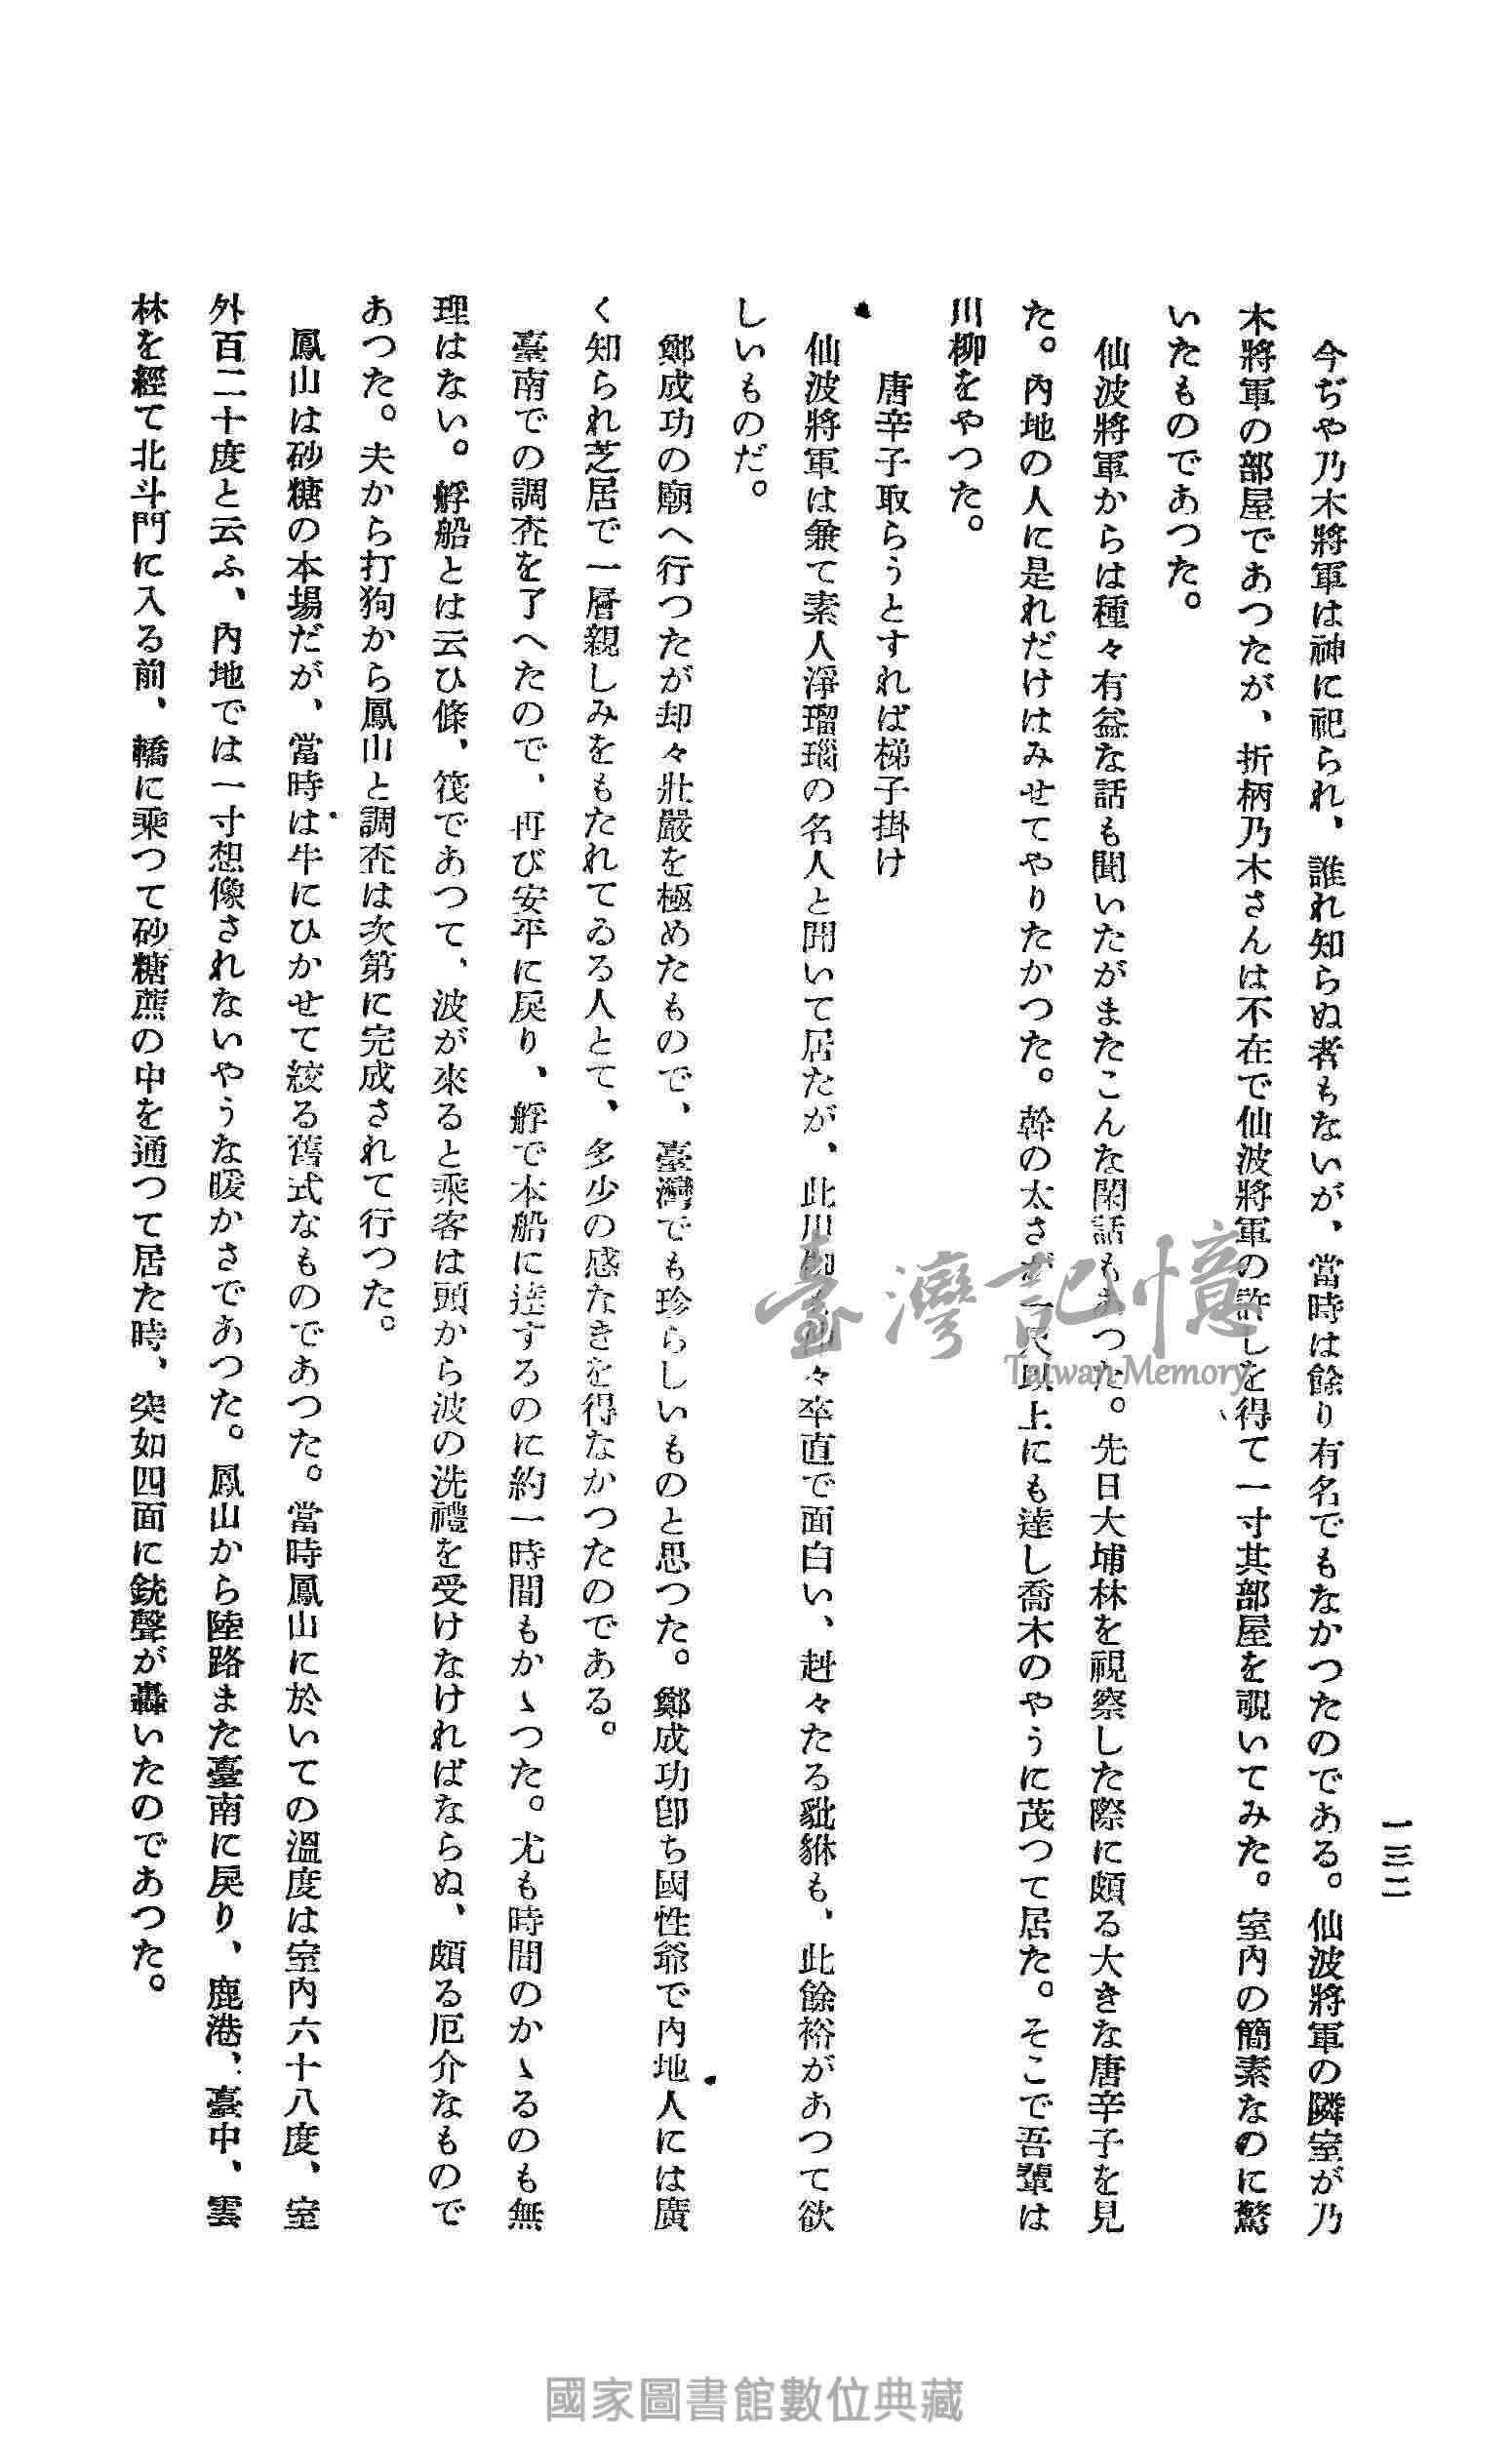 一三二
今ぢや乃木將軍は神に祀られ、誰れ知らぬ者もないが、當時は餘り有名でもなかつたのである。仙波將軍の隣室が乃
木將軍の部屋であつたが、折柄乃木さんは不在で仙波將軍の許しを得て一寸其部屋を覗いてみた。室內の簡素なのに驚
いたものであつた。
仙波將軍からは種々有益な話も聞いたがまたこんな閑話もあつた。先日大埔林を視察した際に頗る大きな唐辛子を見
た。內地の人に是れだけはみせてやりたかつた。幹の太さが一尺以上にも達し喬木のやうに茂つて居た。そこで吾輩は
川柳をやつた。
唐辛子取らうとすれば梯子掛け
仙波將軍は兼て素人淨瑠璃の名人と聞いて居たが、此川柳も仲々卒直で面白い、赳々たる豼貅も、此餘裕があつて欲
しいものだ。
鄭成功の廟へ行つたが却々壯嚴を極めたもので、臺灣でも珍らしいものと思つた。鄭成功卽ち國性爺で內地人には廣
く知られ芝居で一層親しみをもたれてゐる人とて、多少の感なきを得なかつたのである。
臺南での調査を了へたので、再び安平に戾り、艀で本船に達するのに約一時間もかゝつた。尤も時間のかゝるのも無
理はない。艀船とは云ひ條、筏であつて、波が來ると乘客は頭から波の洗禮を受けなければならぬ、頗る厄介なもので
あつた。夫から打狗から鳳山と調査は次第に完成されて行つた。
鳳山は砂糖の本場だが、當時は牛にひかせて絞る舊式なものであつた。當時鳳山に於いての溫度は室內六十八度、室
外百二十度と云ふ、內地では一寸想像されないやうな暖かさであつた。鳳山から陸路また臺南に戾り、鹿港、臺中、雲
林を經て北斗門に入る前、轎に乘つて砂糖蔗の中を通つて居た時、突如四面に銃聲が轟いたのであつた。
臺灣記憶
Taiwan Memory
國家圖書館數位典藏